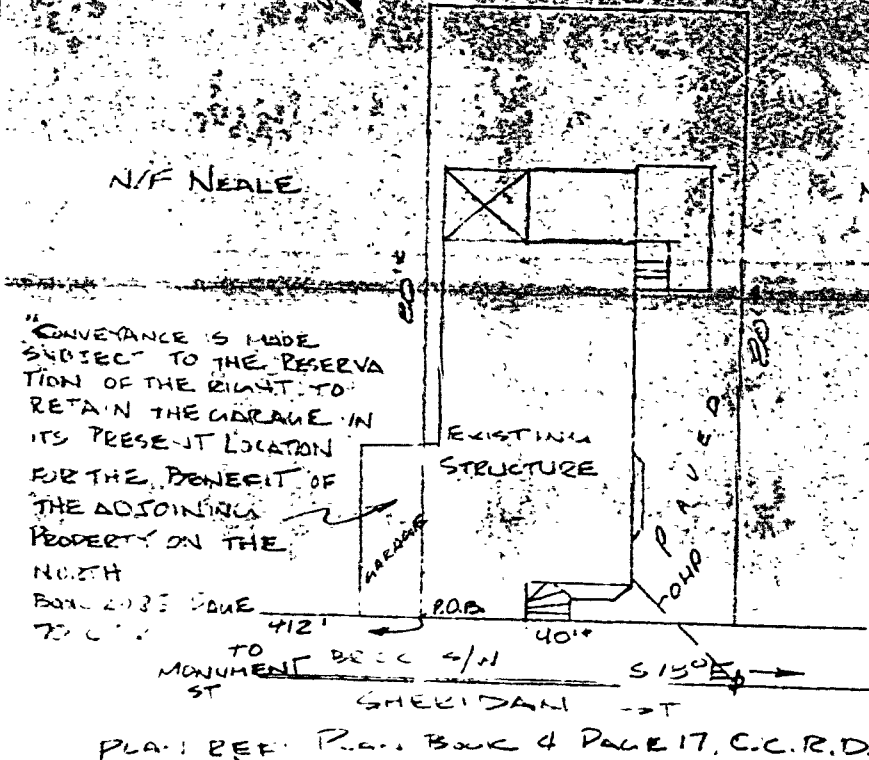 N/F NEALE
80'±
"CONVEYANCE IS MADE
SUBJECT TO THE RESERVA
TION OF THE RIGHT TO
RETAIN THE GARAGE IN
ITS PRESENT LOCATION
FOR THE BENEFIT OF
THE ADJOINING
PROPERTY ON THE
NORTH
EXISTING
STRUCTURE
GARAGE
PAVED
80
OHP
P.O.B.
412'
40'±
TO
MONUMENT
ST
S/W
S 15° E
SHERIDAN ST
PLAN REF: PLAN BOOK 4 PAGE 17, C.C.R.D.